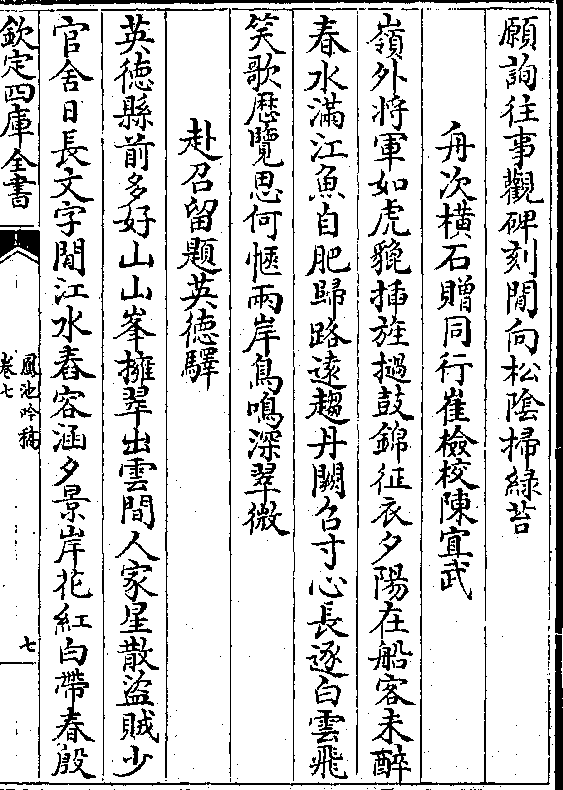 願詢往事觀碑刻閒向松陰掃綠苔
舟次横石贈同行崔檢校陳宣武
嶺外將軍如虎貔插旌撾鼓錦征衣夕陽在船客未醉
春水滿江魚自肥歸路遠趨丹闕召寸心長逐白雲飛
笑歌歴覽思何愜兩岸鳥鳴深翠微
赴召留題英徳驛
英徳縣前多好山山峯擁翠出雲間人家星散盜賊少
官舍日長文字閒江水舂容涵夕景岸花紅白帶春殷
欽定四庫全書
鳳池吟稿
卷七
七